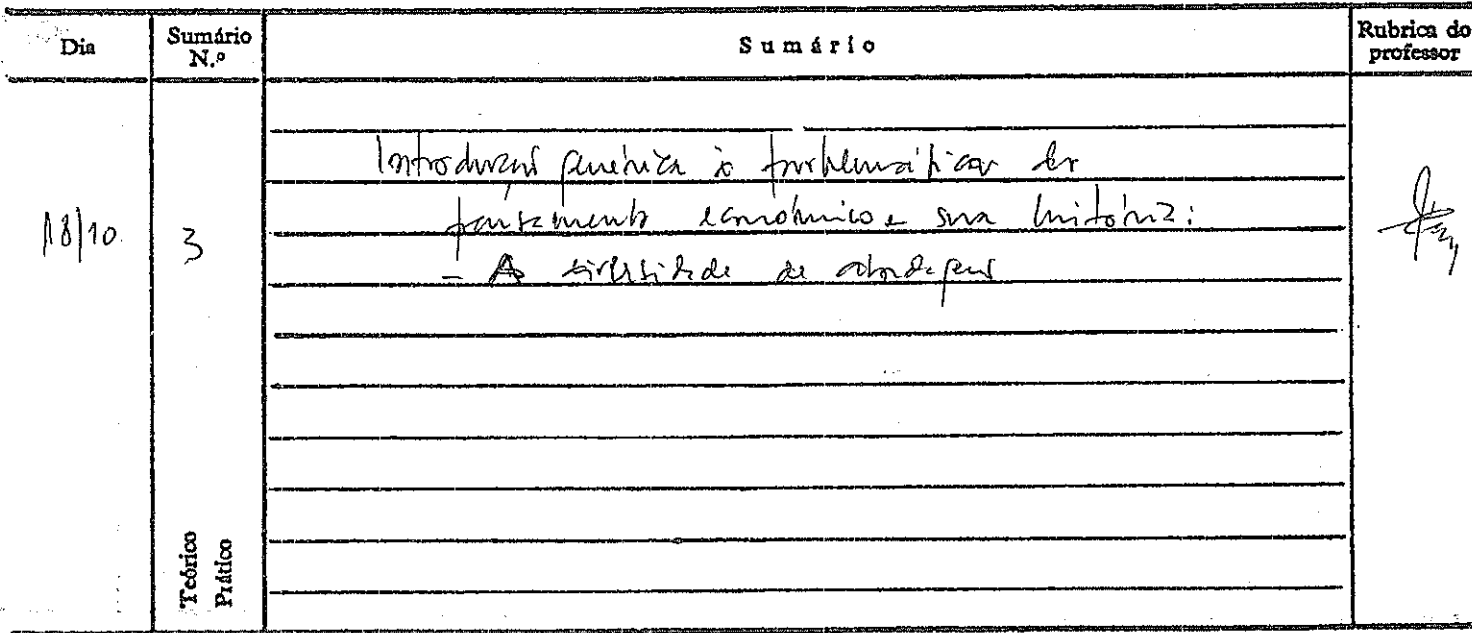 Dia
Sumário N.º
Sumário
Rubrica do professor
Introdução genérica às problemáticas do
pensamento económico e sua história:
18/10.
3
- A diversidade de abordagens
Teórico
Prático